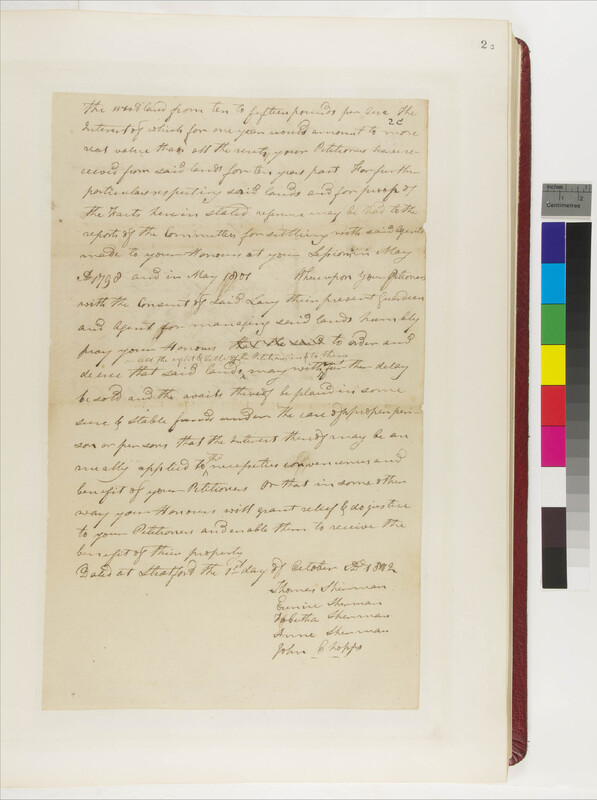 2
the wood land from ten to fifteen pounds per acre the
Interest of which for one year would amount to more
real value than all the rents your Petitioners have re=
ceived from said lands for ten years past For further
particulars respecting said lands and for proof of
the Facts herein stated reference may be had to the
reports of the Committee for settling with said Agents
made to your Honours at your Sessions in May
AD 1798 and in May 1801 Whereupon Your Petitioners
with the Consent of said Lacy their present Guardian
and Agent for managing said lands humbly
pray your Honours that the said to order and
all the right & title of the Petitioners to them
decree that said lands may without further delay
be sold and the avails thereof be placed in some
sure & stable funds under the care of proper per=
son or persons that the Interest thereof may be an
nually applied to the necessities conveniences and
benefit of your Petitioners Or that in some other
way your Honours will grant relief & do justice
to your Petitioners and enable them to receive the
benefit of their property
Dated at Stratford the 1st day of October AD 1802
Thomas Sherman
Eunice Sherman
Tabitha Sherman
Anne Sherman
John Chops
Inches 1 2
Centimetres